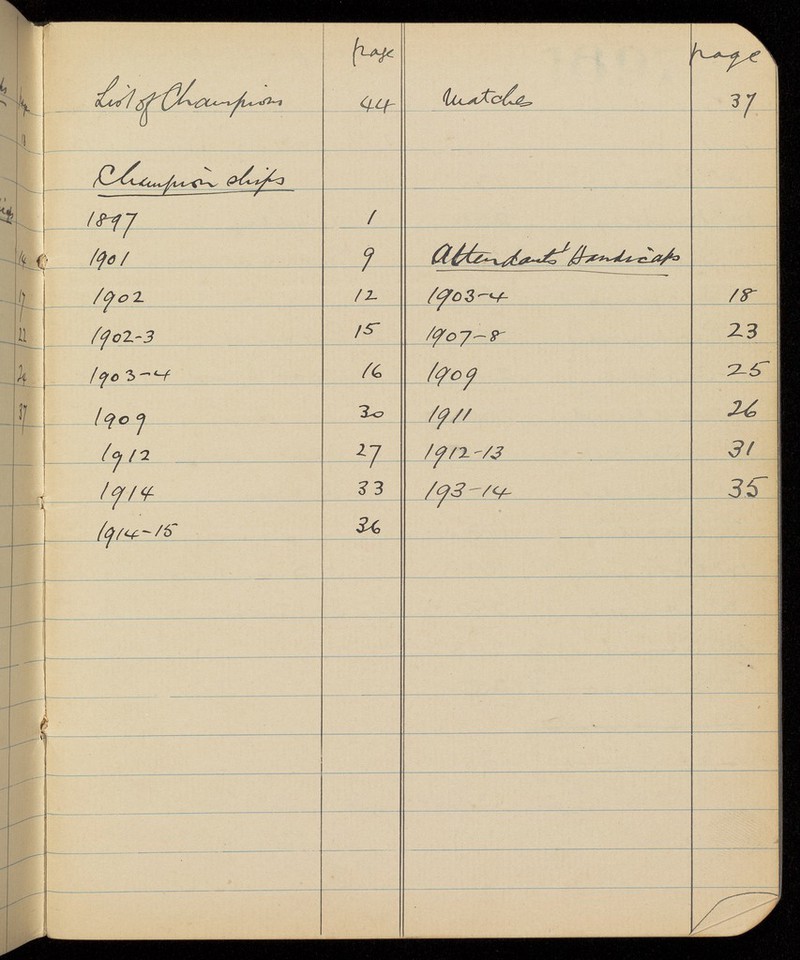 page page
List of Champions 44 Matches 37
Championships
1897 1
1901 9 Attendants' Handicaps
1902 12 1903-4 18
1902-3 15 1907-8 23
1903-4 16 1909 25
1909 30 1911 26
1912 27 1912-13 31
1914 33 193-14 35
1914-15 36
17
22
37